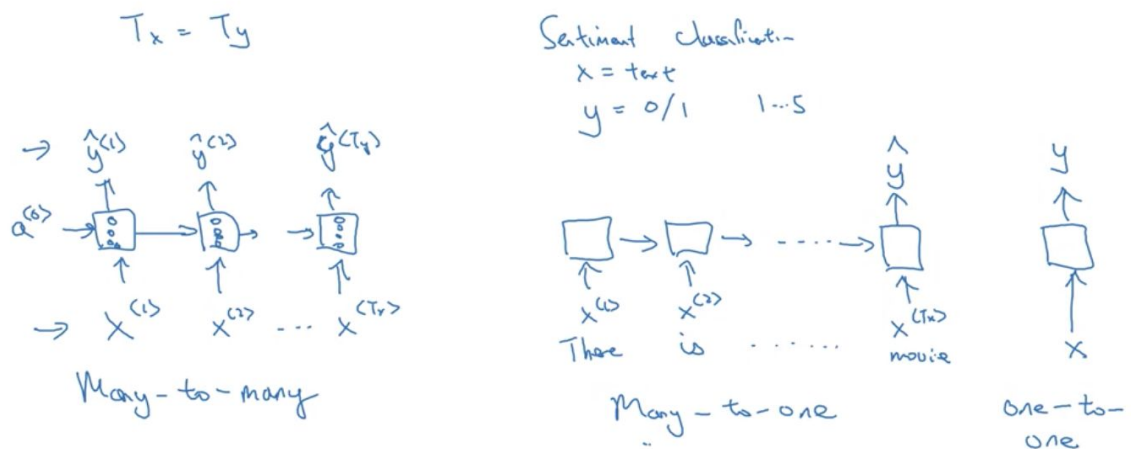 Tx = Ty
ŷ<1> ŷ<2> ŷ<Ty>
a<0>
x<1> x<2> ... x<Tx>
Many-to-many
Sentiment classification
x = text
y = 0/1 1...5
ŷ
x<1> x<2> ..... x<Tx>
There is ....... movie
Many-to-one
y
x
one-to-
one